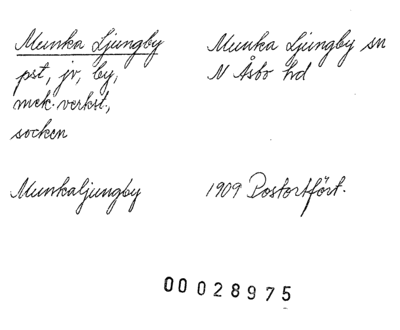 Munka Ljungby
Munka Ljungby sn
pst, jv, by,
N Åsbo hd
mek. verkst.,
socken
Munkaljungby
1909 Postortfört.
00028975